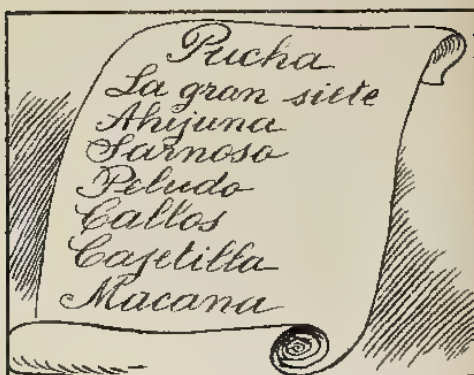 Pucha
La gran siete
Ahijuna
Sarnoso
Peludo
Callos
Cajetilla
Macana